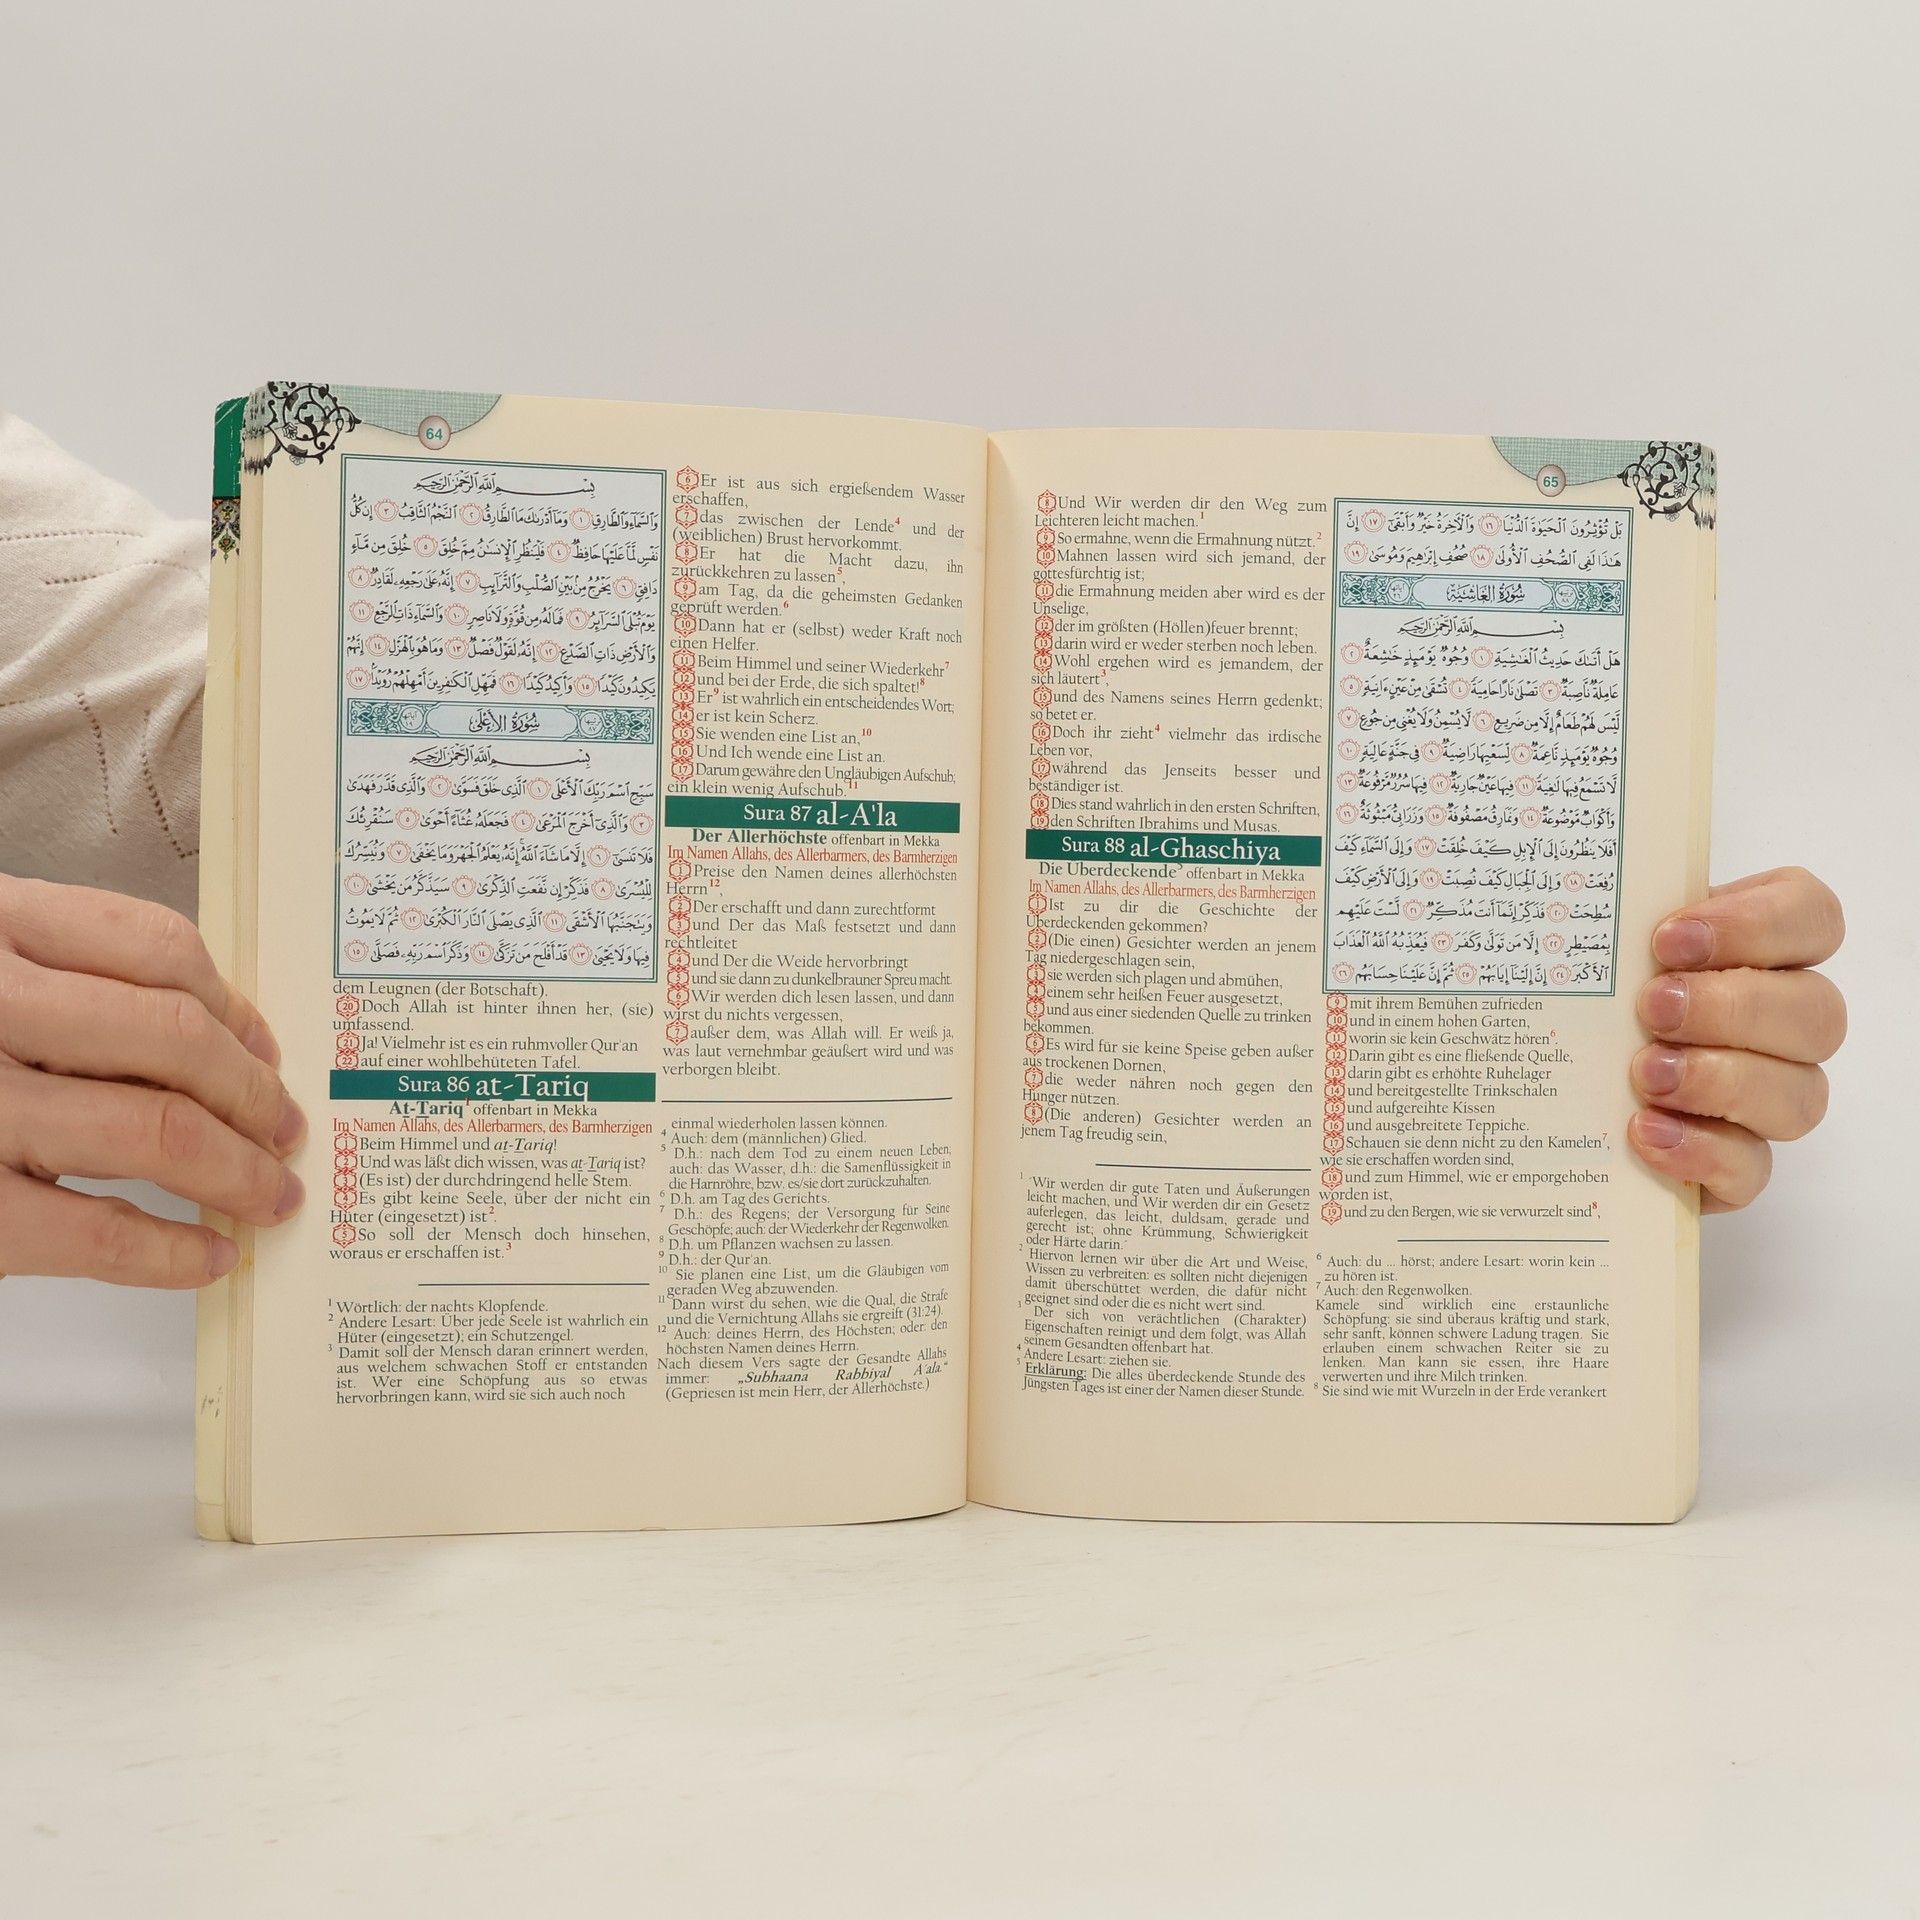 64
بِسْمِ ٱللَّهِ ٱلرَّحْمَٰنِ ٱلرَّحِيمِ
وَٱلسَّمَآءِ وَٱلطَّارِقِ ١ وَمَآ أَدْرَىٰكَ مَا ٱلطَّارِقُ ٢ ٱلنَّجْمُ ٱلثَّاقِبُ ٣ إِن كُلُّ
نَفْسٍ لَّمَّا عَلَيْهَا حَافِظٌ ٤ فَلْيَنظُرِ ٱلْإِنسَٰنُ مِمَّ خُلِقَ ٥ خُلِقَ مِن مَّآءٍ
دَافِقٍ ٦ يَخْرُجُ مِنۢ بَيْنِ ٱلصُّلْبِ وَٱلتَّرَآئِبِ ٧ إِنَّهُۥ عَلَىٰ رَجْعِهِۦ لَقَادِرٌ ٨
يَوْمَ تُبْلَى ٱلسَّرَآئِرُ ٩ فَمَا لَهُۥ مِن قُوَّةٍ وَلَا نَاصِرٍ ١٠ وَٱلسَّمَآءِ ذَاتِ ٱلرَّجْعِ ١١
وَٱلْأَرْضِ ذَاتِ ٱلصَّدْعِ ١٢ إِنَّهُۥ لَقَوْلٌ فَصْلٌ ١٣ وَمَا هُوَ بِٱلْهَزْلِ ١٤ إِنَّهُمْ
يَكِيدُونَ كَيْدًا ١٥ وَأَكِيدُ كَيْدًا ١٦ فَمَهِّلِ ٱلْكَٰفِرِينَ أَمْهِلْهُمْ رُوَيْدًۢا ١٧
سُورَةُ الأَعْلَىٰ
بِسْمِ ٱللَّهِ ٱلرَّحْمَٰنِ ٱلرَّحِيمِ
سَبِّحِ ٱسْمَ رَبِّكَ ٱلْأَعْلَى ١ ٱلَّذِى خَلَقَ فَسَوَّىٰ ٢ وَٱلَّذِى قَدَّرَ فَهَدَىٰ
٣ وَٱلَّذِىٓ أَخْرَجَ ٱلْمَرْعَىٰ ٤ فَجَعَلَهُۥ غُثَآءً أَحْوَىٰ ٥ سَنُقْرِئُكَ
فَلَا تَنسَىٰٓ ٦ إِلَّا مَا شَآءَ ٱللَّهُ إِنَّهُۥ يَعْلَمُ ٱلْجَهْرَ وَمَا يَخْفَىٰ ٧ وَنُيَسِّرُكَ
لِلْيُسْرَىٰ ٨ فَذَكِّرْ إِن نَّفَعَتِ ٱلذِّكْرَىٰ ٩ سَيَذَّكَّرُ مَن يَخْشَىٰ ١٠
وَيَتَجَنَّبُهَا ٱلْأَشْقَى ١١ ٱلَّذِى يَصْلَى ٱلنَّارَ ٱلْكُبْرَىٰ ١٢ ثُمَّ لَا يَمُوتُ
فِيهَا وَلَا يَحْيَىٰ ١٣ قَدْ أَفْلَحَ مَن تَزَكَّىٰ ١٤ وَذَكَرَ ٱسْمَ رَبِّهِۦ فَصَلَّىٰ ١٥
dem Leugnen (der Botschaft).
20 Doch Allah ist hinter ihnen her, (sie)
umfassend.
21 Ja! Vielmehr ist es ein ruhmvoller Qur'an
22 auf einer wohlbehüteten Tafel.
Sura 86 at-Tariq
At-Tariq¹ offenbart in Mekka
Im Namen Allahs, des Allerbarmers, des Barmherzigen
1 Beim Himmel und at-Tariq!
2 Und was läßt dich wissen, was at-Tariq ist?
3 (Es ist) der durchdringend helle Stern.
4 Es gibt keine Seele, über der nicht ein
Hüter (eingesetzt) ist².
5 So soll der Mensch doch hinsehen,
woraus er erschaffen ist.³
¹ Wörtlich: der nachts Klopfende.
² Andere Lesart: Über jede Seele ist wahrlich ein
Hüter (eingesetzt); ein Schutzengel.
³ Damit soll der Mensch daran erinnert werden,
aus welchem schwachen Stoff er entstanden
ist. Wer eine Schöpfung aus so etwas
hervorbringen kann, wird sie sich auch noch
6 Er ist aus sich ergießendem Wasser
erschaffen,
7 das zwischen der Lende⁴ und der
(weiblichen) Brust hervorkommt.
8 Er hat die Macht dazu, ihn
zurückkehren zu lassen⁵,
9 am Tag, da die geheimsten Gedanken
geprüft werden.⁶
10 Dann hat er (selbst) weder Kraft noch
einen Helfer.
11 Beim Himmel und seiner Wiederkehr⁷
12 und bei der Erde, die sich spaltet!⁸
13 Er⁹ ist wahrlich ein entscheidendes Wort;
14 er ist kein Scherz.
15 Sie wenden eine List an,¹⁰
16 Und Ich wende eine List an.
17 Darum gewähre den Ungläubigen Aufschub;
ein klein wenig Aufschub.¹¹
Sura 87 al-A'la
Der Allerhöchste offenbart in Mekka
Im Namen Allahs, des Allerbarmers, des Barmherzigen
1 Preise den Namen deines allerhöchsten
Herrn¹²,
2 Der erschafft und dann zurechtformt
3 und Der das Maß festsetzt und dann
rechtleitet
4 und Der die Weide hervorbringt
5 und sie dann zu dunkelbrauner Spreu macht.
6 Wir werden dich lesen lassen, und dann
wirst du nichts vergessen,
7 außer dem, was Allah will. Er weiß ja,
was laut vernehmbar geäußert wird und was
verborgen bleibt.
einmal wiederholen lassen können.
⁴ Auch: dem (männlichen) Glied.
⁵ D.h.: nach dem Tod zu einem neuen Leben;
auch: das Wasser, d.h.: die Samenflüssigkeit in
die Harnröhre, bzw. es/sie dort zurückzuhalten.
⁶ D.h. am Tag des Gerichts.
⁷ D.h.: des Regens; der Versorgung für Seine
Geschöpfe; auch: der Wiederkehr der Regenwolken.
⁸ D.h. um Pflanzen wachsen zu lassen.
⁹ D.h.: der Qur'an.
¹⁰ Sie planen eine List, um die Gläubigen vom
geraden Weg abzuwenden.
¹¹ Dann wirst du sehen, wie die Qual, die Strafe
und die Vernichtung Allahs sie ergreift (31:24).
¹² Auch: deines Herrn, des Höchsten; oder: den
höchsten Namen deines Herrn.
Nach diesem Vers sagte der Gesandte Allahs
immer: „Subhaana Rabbiyal A'ala."
(Gepriesen ist mein Herr, der Allerhöchste.)
65
8 Und Wir werden dir den Weg zum
Leichteren leicht machen.¹
9 So ermahne, wenn die Ermahnung nützt.²
10 Mahnen lassen wird sich jemand, der
gottesfürchtig ist;
11 die Ermahnung meiden aber wird es der
Unselige,
12 der im größten (Höllen)feuer brennt;
13 darin wird er weder sterben noch leben.
14 Wohl ergehen wird es jemandem, der
sich läutert³,
15 und des Namens seines Herrn gedenkt;
so betet er.
16 Doch ihr zieht⁴ vielmehr das irdische
Leben vor,
17 während das Jenseits besser und
beständiger ist.
18 Dies stand wahrlich in den ersten Schriften,
19 den Schriften Ibrahims und Musas.
Sura 88 al-Ghaschiya
Die Überdeckende⁵ offenbart in Mekka
Im Namen Allahs, des Allerbarmers, des Barmherzigen
1 Ist zu dir die Geschichte der
Überdeckenden gekommen?
2 (Die einen) Gesichter werden an jenem
Tag niedergeschlagen sein,
3 sie werden sich plagen und abmühen,
4 einem sehr heißen Feuer ausgesetzt,
5 und aus einer siedenden Quelle zu trinken
bekommen.
6 Es wird für sie keine Speise geben außer
aus trockenen Dornen,
7 die weder nähren noch gegen den
Hunger nützen.
8 (Die anderen) Gesichter werden an
jenem Tag freudig sein,
¹ Wir werden dir gute Taten und Äußerungen
leicht machen, und Wir werden dir ein Gesetz
auferlegen, das leicht, duldsam, gerade und
gerecht ist; ohne Krümmung, Schwierigkeit
oder Härte darin.
² Hiervon lernen wir über die Art und Weise,
Wissen zu verbreiten: es sollten nicht diejenigen
damit überschüttet werden, die dafür nicht
geeignet sind oder die es nicht wert sind.
³ Der sich von verächtlichen (Charakter)
Eigenschaften reinigt und dem folgt, was Allah
seinem Gesandten offenbart hat.
⁴ Andere Lesart: ziehen sie.
⁵ Erklärung: Die alles überdeckende Stunde des
Jüngsten Tages ist einer der Namen dieser Stunde.
بَلْ تُؤْثِرُونَ ٱلْحَيَوٰةَ ٱلدُّنْيَا ١٦ وَٱلْءَاخِرَةُ خَيْرٌ وَأَبْقَىٰٓ ١٧ إِنَّ
هَٰذَا لَفِى ٱلصُّحُفِ ٱلْأُولَىٰ ١٨ صُحُفِ إِبْرَٰهِيمَ وَمُوسَىٰ ١٩
سُورَةُ الغَاشِيَةِ
بِسْمِ ٱللَّهِ ٱلرَّحْمَٰنِ ٱلرَّحِيمِ
هَلْ أَتَىٰكَ حَدِيثُ ٱلْغَٰشِيَةِ ١ وُجُوهٌ يَوْمَئِذٍ خَٰشِعَةٌ ٢
عَامِلَةٌ نَّاصِبَةٌ ٣ تَصْلَىٰ نَارًا حَامِيَةً ٤ تُسْقَىٰ مِنْ عَيْنٍ ءَانِيَةٍ ٥
لَّيْسَ لَهُمْ طَعَامٌ إِلَّا مِن ضَرِيعٍ ٦ لَّا يُسْمِنُ وَلَا يُغْنِى مِن جُوعٍ ٧
وُجُوهٌ يَوْمَئِذٍ نَّاعِمَةٌ ٨ لِّسَعْيِهَا رَاضِيَةٌ ٩ فِى جَنَّةٍ عَالِيَةٍ ١٠
لَّا تَسْمَعُ فِيهَا لَٰغِيَةً ١١ فِيهَا عَيْنٌ جَارِيَةٌ ١٢ فِيهَا سُرُرٌ مَّرْفُوعَةٌ ١٣
وَأَكْوَابٌ مَّوْضُوعَةٌ ١٤ وَنَمَارِقُ مَصْفُوفَةٌ ١٥ وَزَرَابِىُّ مَبْثُوثَةٌ ١٦
أَفَلَا يَنظُرُونَ إِلَى ٱلْإِبِلِ كَيْفَ خُلِقَتْ ١٧ وَإِلَى ٱلسَّمَآءِ كَيْفَ
رُفِعَتْ ١٨ وَإِلَى ٱلْجِبَالِ كَيْفَ نُصِبَتْ ١٩ وَإِلَى ٱلْأَرْضِ كَيْفَ
سُطِحَتْ ٢٠ فَذَكِّرْ إِنَّمَآ أَنتَ مُذَكِّرٌ ٢١ لَّسْتَ عَلَيْهِم
بِمُصَيْطِرٍ ٢٢ إِلَّا مَن تَوَلَّىٰ وَكَفَرَ ٢٣ فَيُعَذِّبُهُ ٱللَّهُ ٱلْعَذَابَ
ٱلْأَكْبَرَ ٢٤ إِنَّ إِلَيْنَآ إِيَابَهُمْ ٢٥ ثُمَّ إِنَّ عَلَيْنَا حِسَابَهُم ٢٦
9 mit ihrem Bemühen zufrieden
10 und in einem hohen Garten,
11 worin sie kein Geschwätz hören⁶.
12 Darin gibt es eine fließende Quelle,
13 darin gibt es erhöhte Ruhelager
14 und bereitgestellte Trinkschalen
15 und aufgereihte Kissen
16 und ausgebreitete Teppiche.
17 Schauen sie denn nicht zu den Kamelen⁷,
wie sie erschaffen worden sind,
18 und zum Himmel, wie er emporgehoben
worden ist,
19 und zu den Bergen, wie sie verwurzelt sind⁸,
⁶ Auch: du ... hörst; andere Lesart: worin kein ...
zu hören ist.
⁷ Auch: den Regenwolken.
Kamele sind wirklich eine erstaunliche
Schöpfung: sie sind überaus kräftig und stark,
sehr sanft, können schwere Ladung tragen. Sie
erlauben einem schwachen Reiter sie zu
lenken. Man kann sie essen, ihre Haare
verwerten und ihre Milch trinken.
⁸ Sie sind wie mit Wurzeln in der Erde verankert